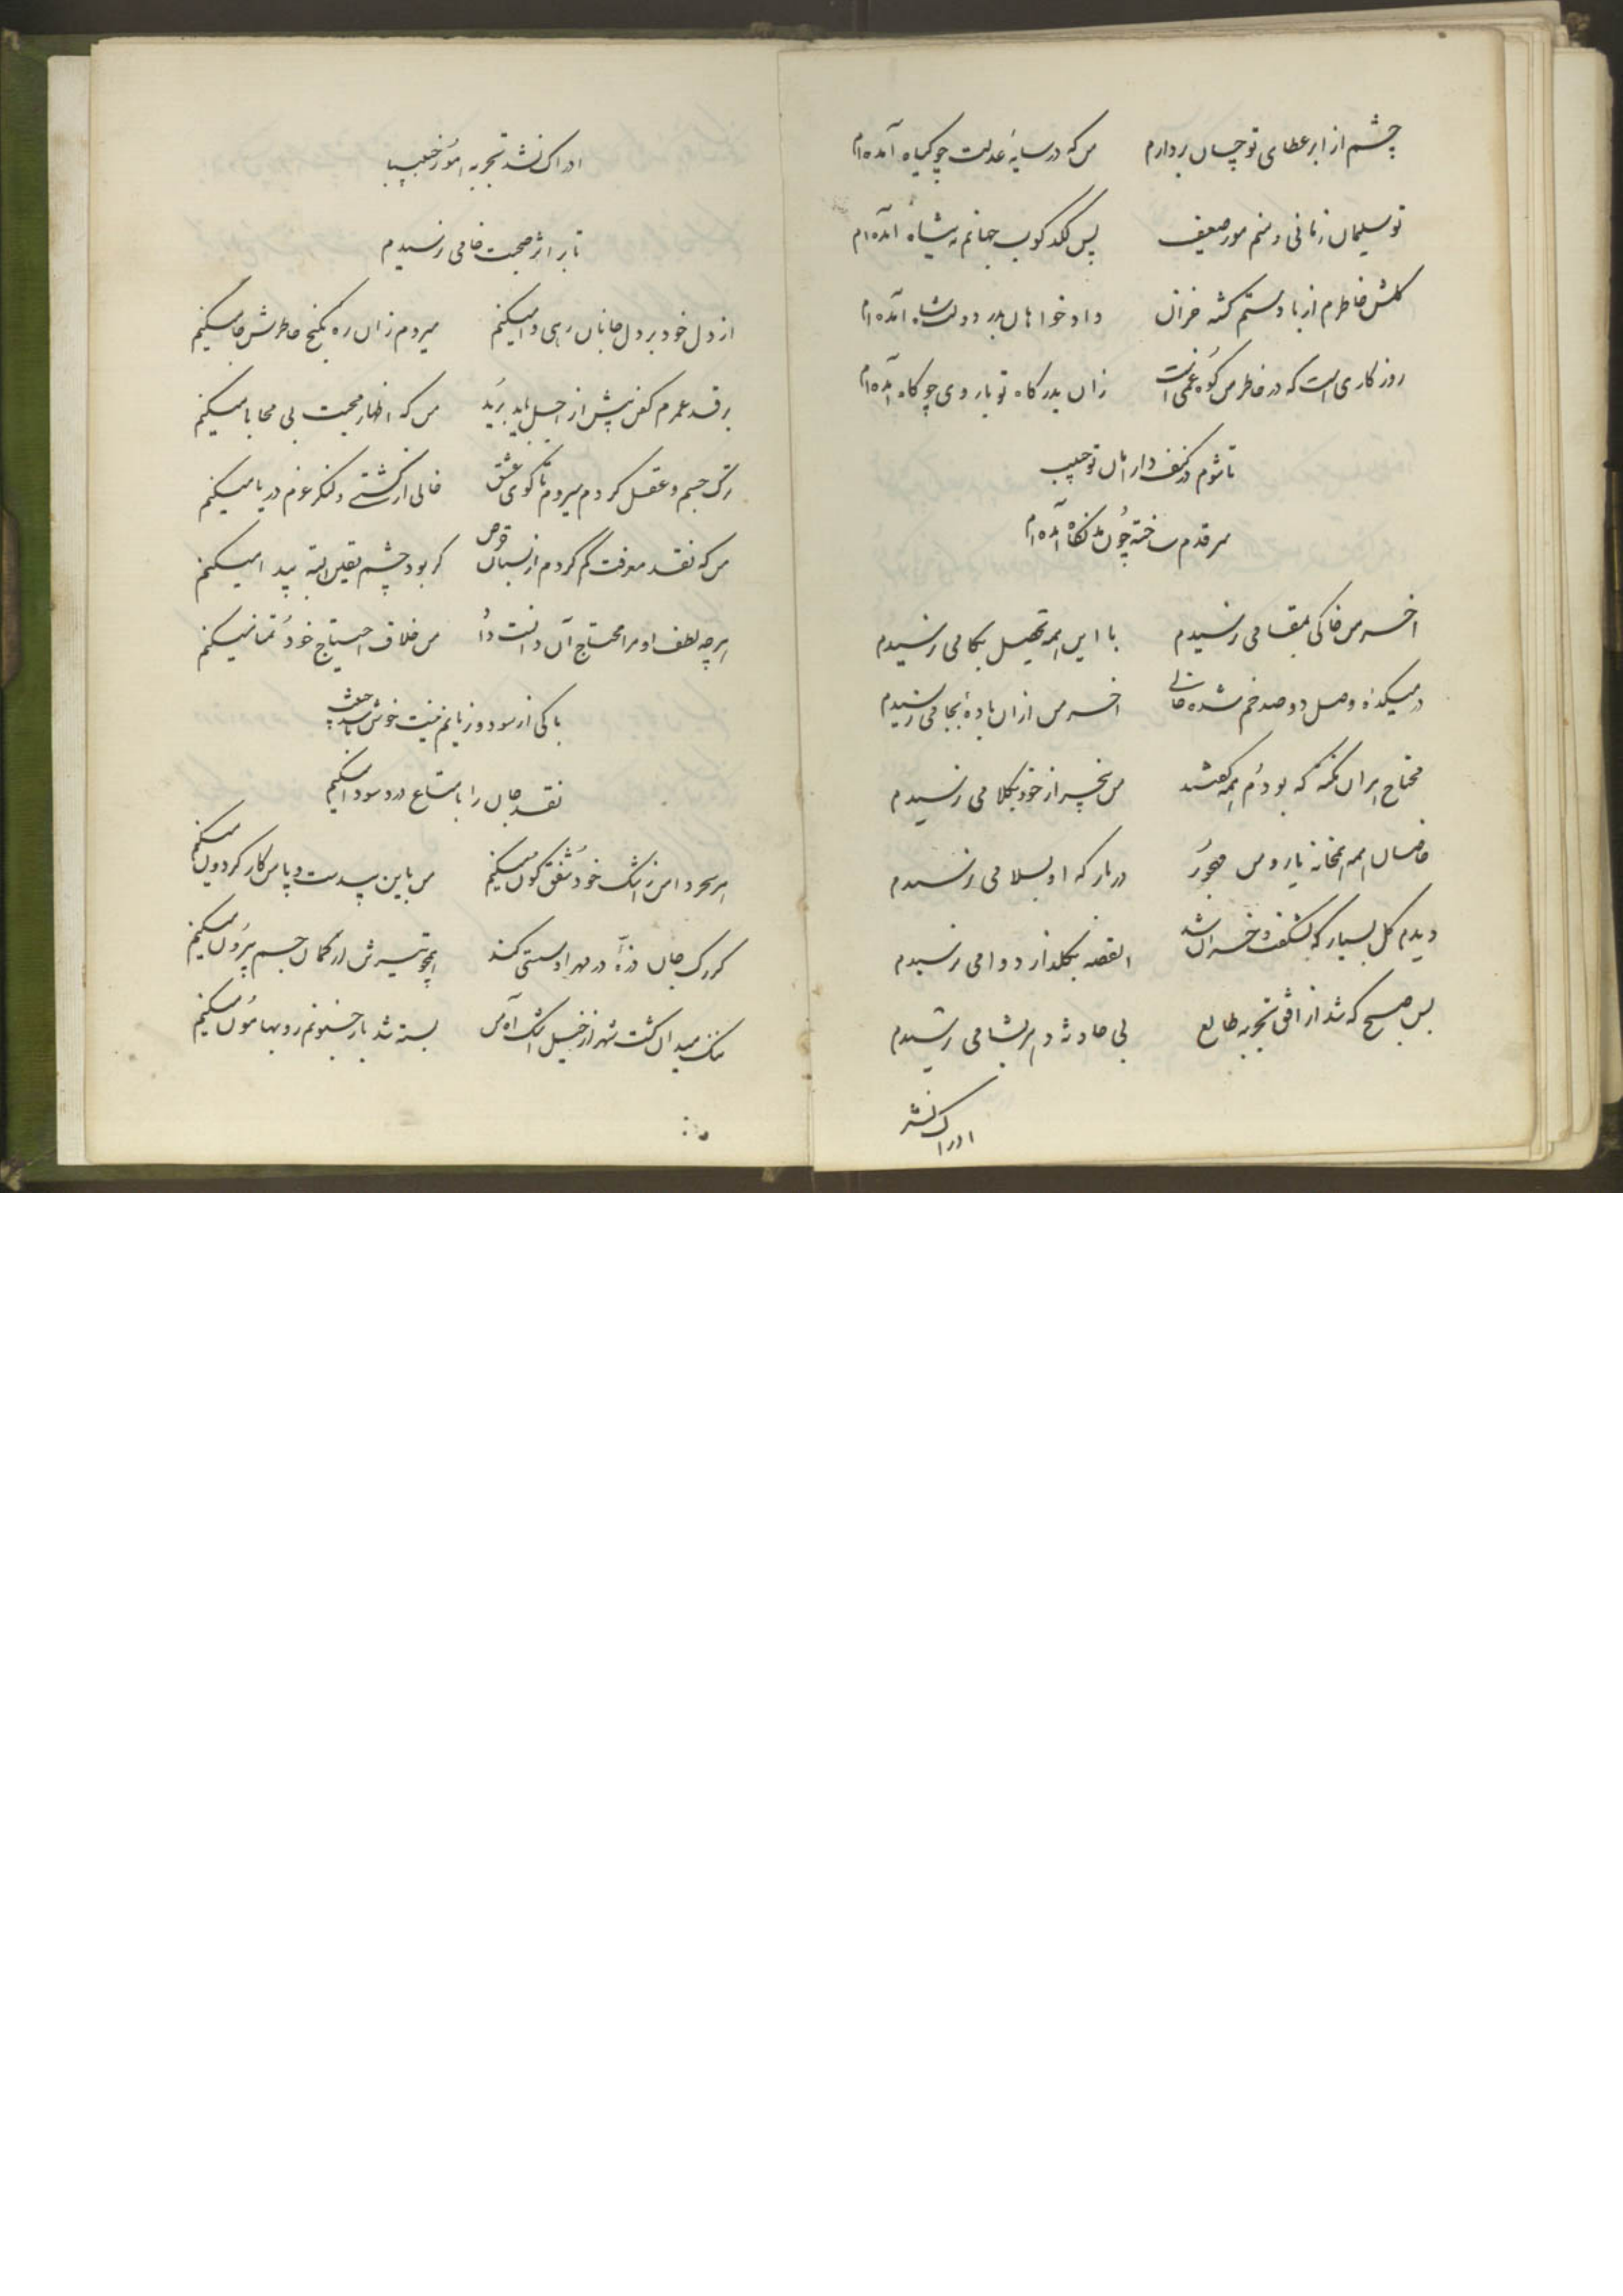 چشم از ابر عطای تو چسان بردارم من که در سایهٔ عدلت چو گیاه آمده‌ام
تو سلیمان زمانی و منم مور ضعیف پس لگد کوب جهانم به پناه آمده‌ام
گلشن خاطرم از باد ستم گشته خزان داد خواهان بدر دولت شاه آمده‌ام
روزگاری است که در خاطر من کوه غمی است زان بدرگاه تو با روی چو کاه آمده‌ام
تا شوم در کنف دار امان تو حبیب
سر قدم ساخته چون مد نگاه آمده‌ام
آخر من خاکی بمقامی نرسیدم با این همه تحصیل بکامی نرسیدم
در میکدهٔ وصل دو صد خم شده خالی آخر من از آن باده بجامی نرسیدم
محتاج بر آن نکته که بودم همه گفتند من بیخبر از خود بکلامی نرسیدم
خاصان همه همخانه یار و من مهجور در بارگه او بسلامی نرسیدم
دیدم گل بسیار که بشکفت و خزان شد القصه بگلزار دوامی نرسیدم
بس صبح که شد از افق تجربه طالع بی حادثه دهر بشامی نرسیدم
ادراک نشد
ادراک نشد تجربه امور حبیبا
تا بر اثر صحبت خامی نرسیدم
از دل خود بر دل جانان رهی وا میکنم میروم زان ره بکنج خاطرش جا میکنم
بر قد عمرم کفن پیش از اجل باید برید من که اظهار محبت بی محابا میکنم
ترک جسم و عقل کردم میروم تا کوی عشق خالی از کشتی و لنگر عزم دریا میکنم
من که نقد معرفت گم کردم از نسیان قرض گر بود چشم یقین البته پیدا میکنم
هر چه لطف او مرا محتاج آن دانست داد من خلاف احتیاج خود تمنا میکنم
باکی از سود و زیانم نیست خوش باشد حبیب
نقد جان را با متاع درد سودا میکنم
هر سحر دامن ز اشک خود شفق گون میکنم من باین بیدست و پا من کار گردون میکنم
گر رگ جان ذرهٔ در مهر او سستی کند همچو تیرش از کمان جسم بیرون میکنم
تنگ میدان گشت شهر از خیل اشک و آه من بسته شد بار جنونم رو بهامون میکنم